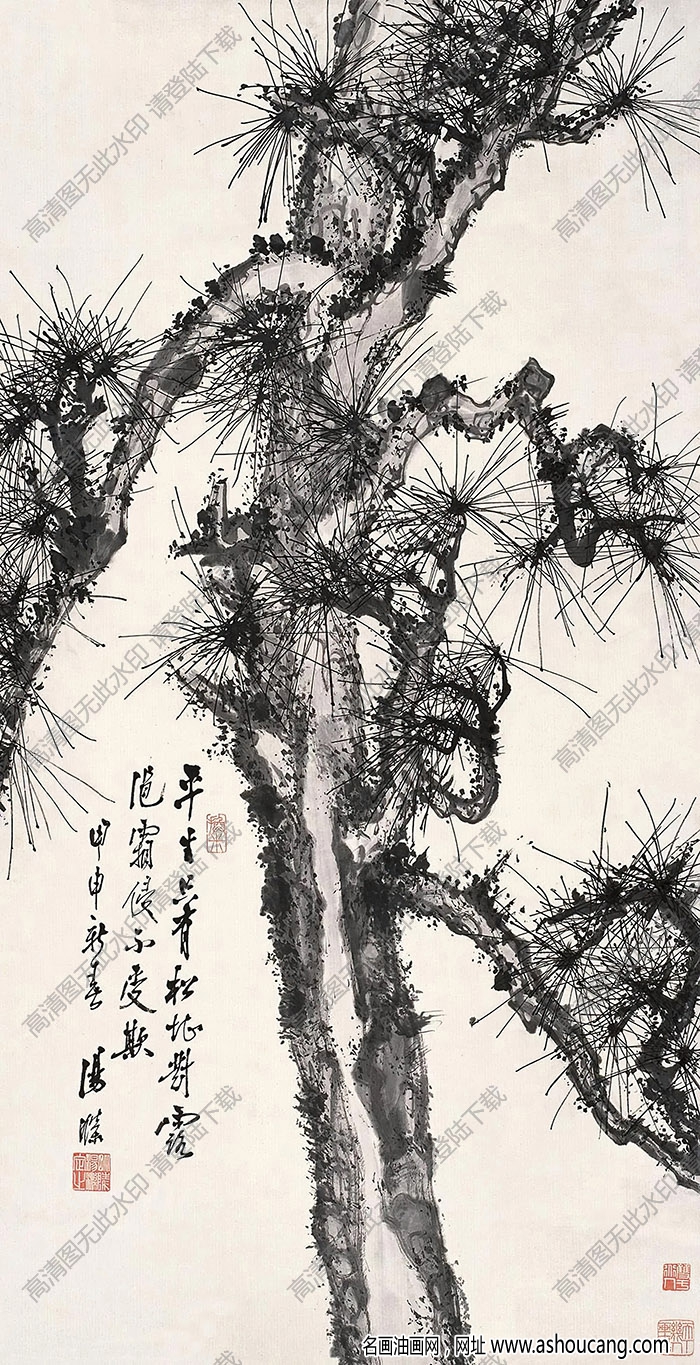 平生只有松堪對露
浥霜侵不受欺
甲申新春 湯滌
高清图无此水印 请登陆下载
名画油画网,网址 www.ashoucang.com